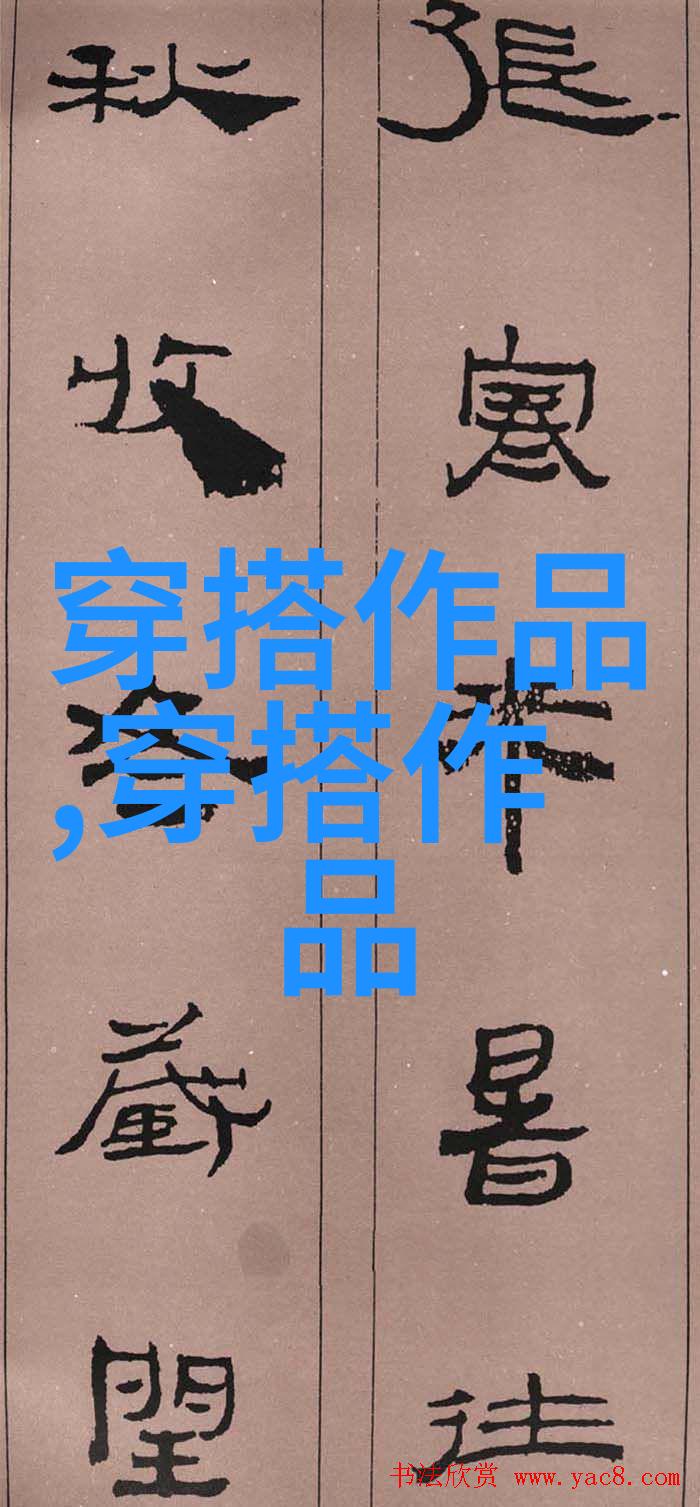 張寒來暑往
秋收冬藏閏
穿搭作品
,穿搭作
品
书法欣赏 www.yac8.com